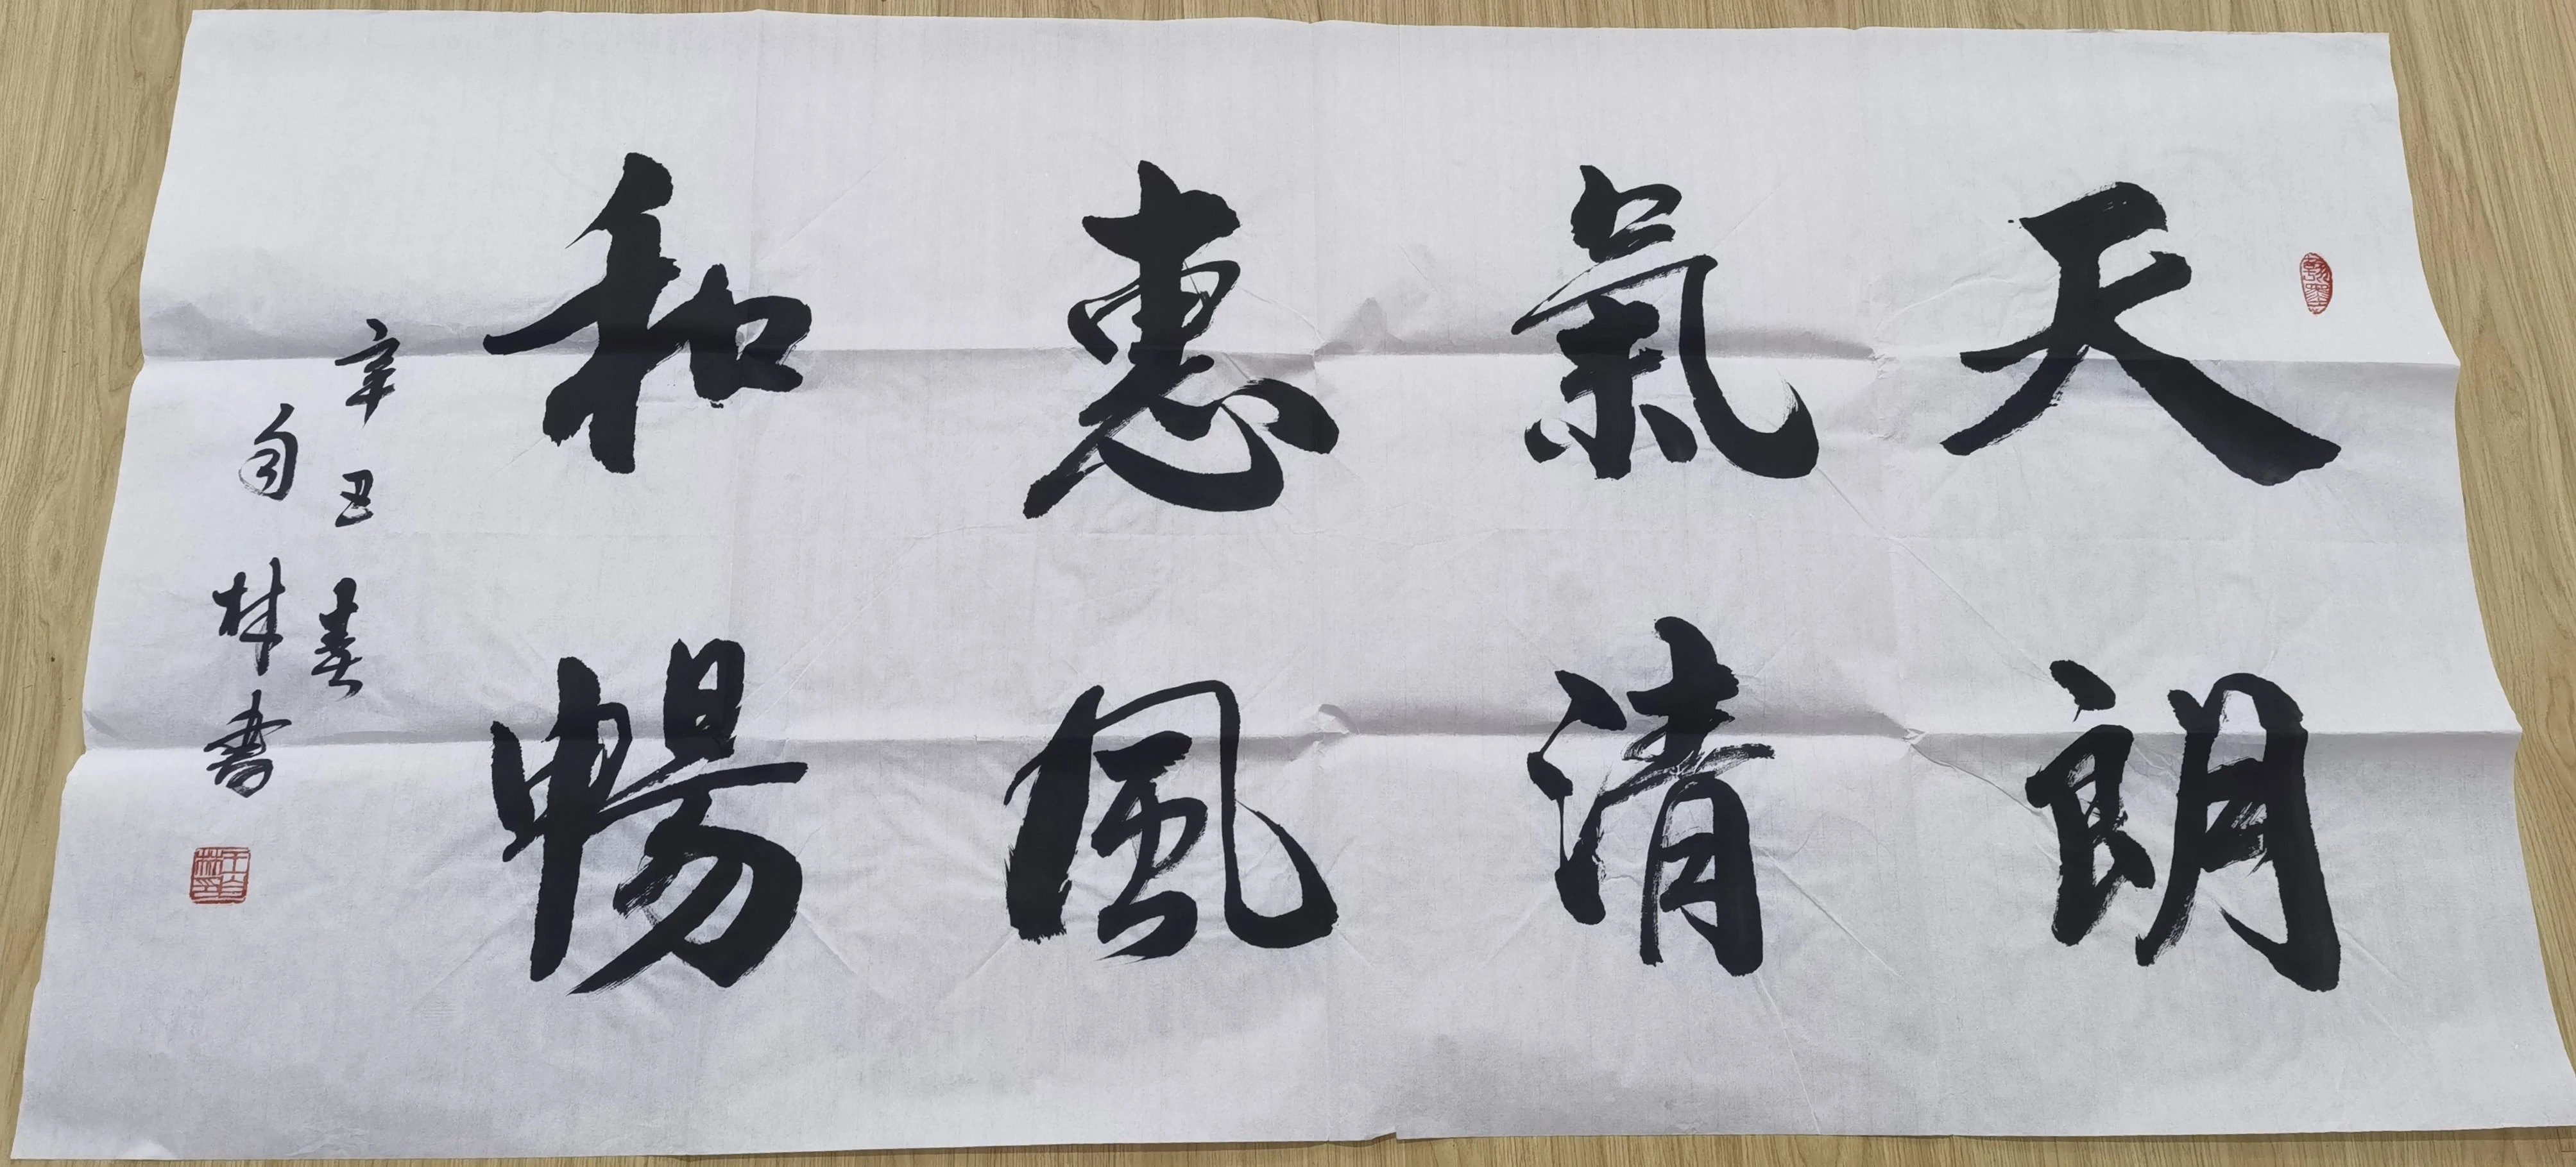 天朗
氣清
惠風
和暢
辛丑春
自林書